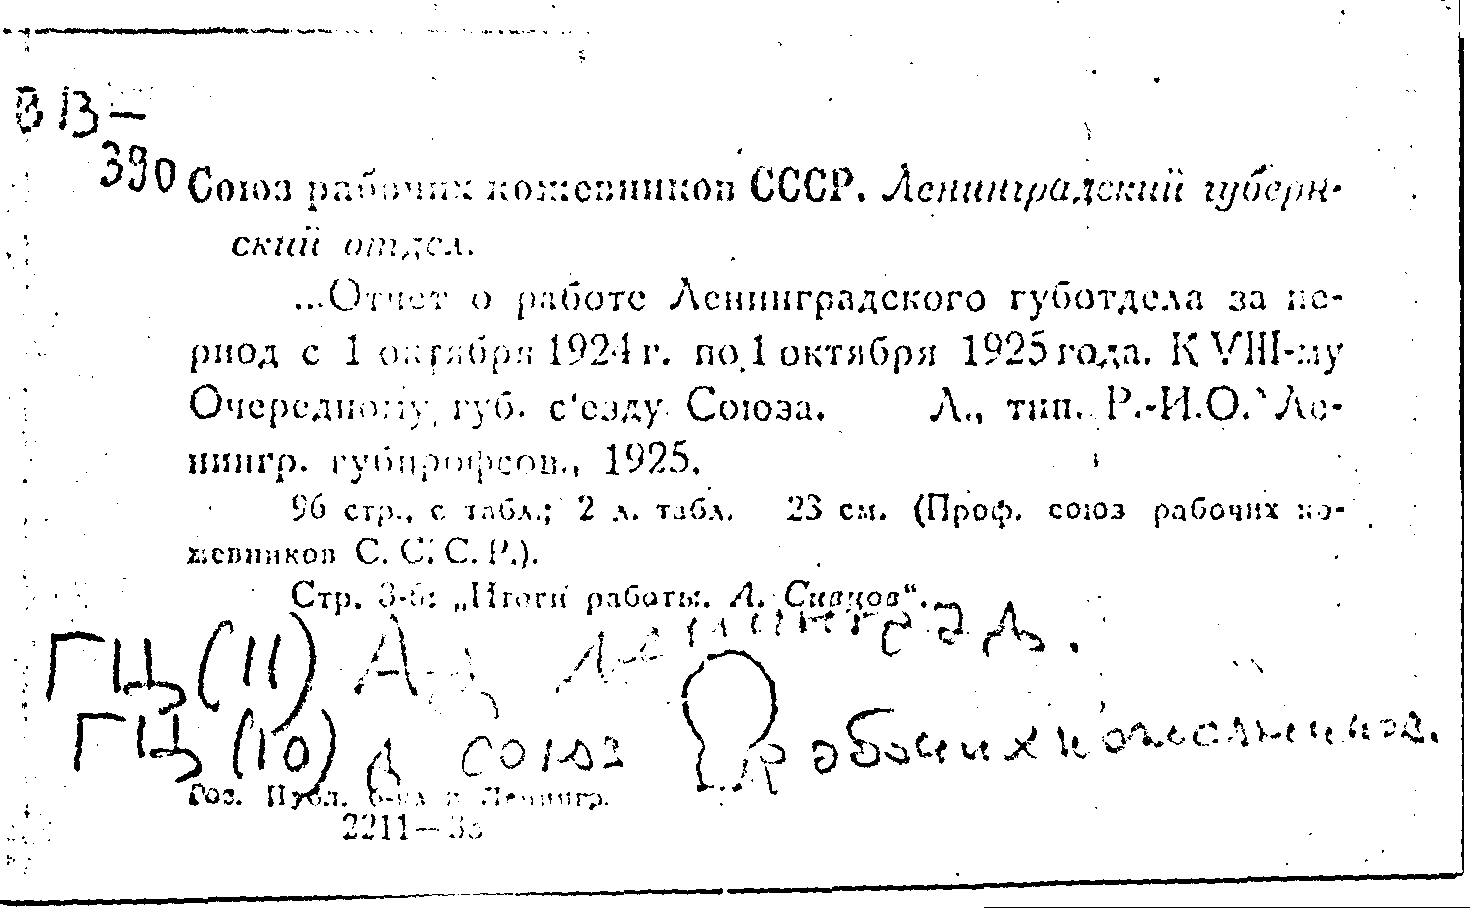 В 13—
390
Союз рабочих кожевников СССР. Ленинградский губерн-
ский отдел.
...Отчет о работе Ленинградского губотдела за пе-
риод с 1 октября 1924 г. по 1 октября 1925 года. К VIII-му
Очередному губ. с'езду Союза. Л., тип. Р.-И.О. Ле-
нингр. губпрофсов., 1925.
96 стр., с табл.; 2 л. табл. 23 см. (Проф. союз рабочих ко-
жевников С. С. С. Р.).
Стр. 3-6: „Итоги работы. А. Сивцов“.
ГЦ (11) Ленинград.
ГЦ (10) в союз Рабочих кожевенников.
Гос. Публ. б-ка в Ленингр.
2211—3в